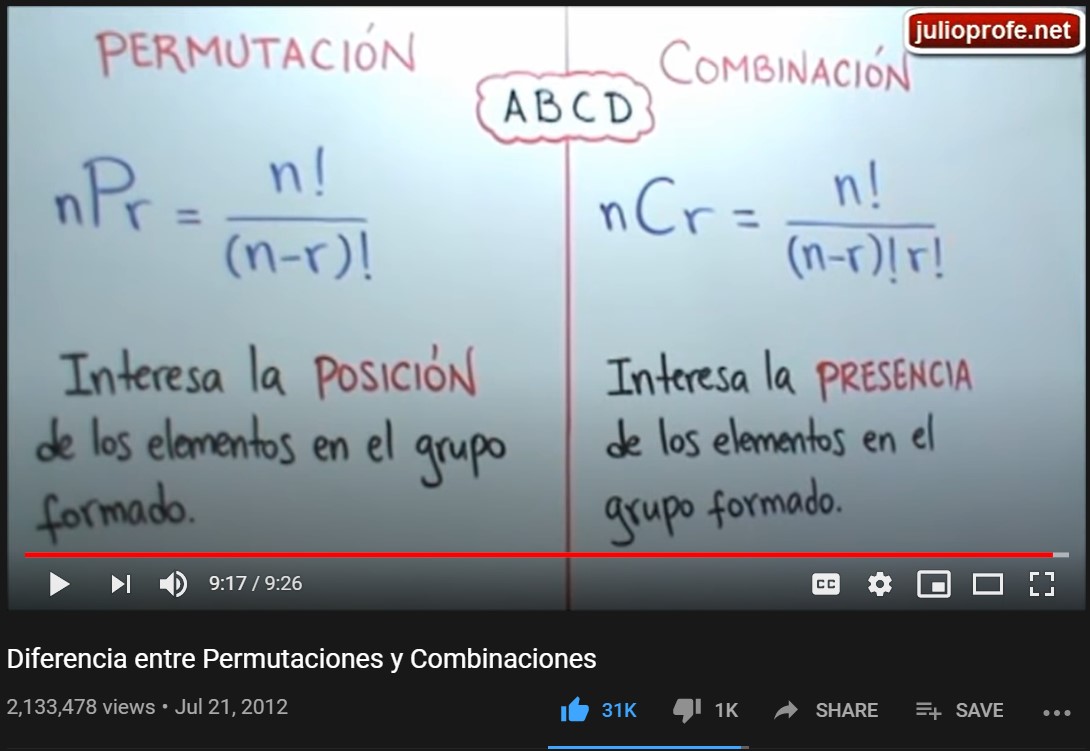 julioprofe.net
PERMUTACIÓN
COMBINACIÓN
ABCD
nPr = n! / (n-r)!
nCr = n! / (n-r)! r!
Interesa la POSICIÓN
de los elementos en el grupo
formado.
Interesa la PRESENCIA
de los elementos en el
grupo formado.
9:17 / 9:26
CC
Diferencia entre Permutaciones y Combinaciones
2,133,478 views • Jul 21, 2012
31K
1K
SHARE
SAVE